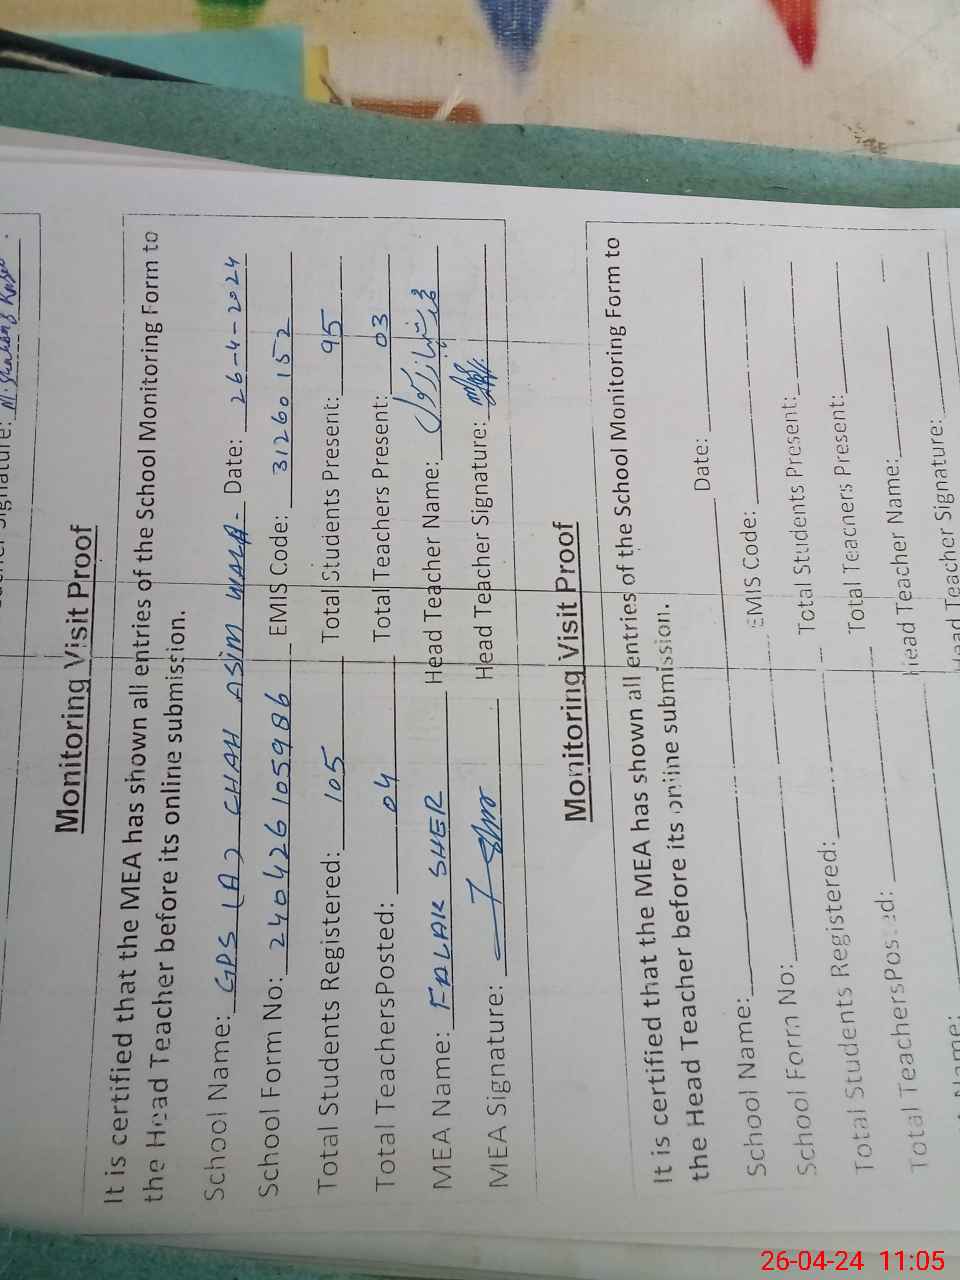 Signature: M. Shahang
Monitoring Visit Proof
It is certified that the MEA has shown all entries of the School Monitoring Form to
the Head Teacher before its online submission.
School Name: GPS (A) CHAH ASIM WALA- Date: 26-4-2024
School Form No: 240426105986 EMIS Code: 31260152
Total Students Registered: 105 Total Students Present: 95
Total TeachersPosted: 04 Total Teachers Present: 03
MEA Name: FALAK SHER Head Teacher Name:
MEA Signature: Head Teacher Signature:
Monitoring Visit Proof
It is certified that the MEA has shown all entries of the School Monitoring Form to
the Head Teacher before its online submission.
School Name: Date:
School Form No: EMIS Code:
Total Students Registered: Total Students Present:
Total TeachersPosted: Total Teachers Present:
Name: Head Teacher Name:
Head Teacher Signature:
26-04-24 11:05